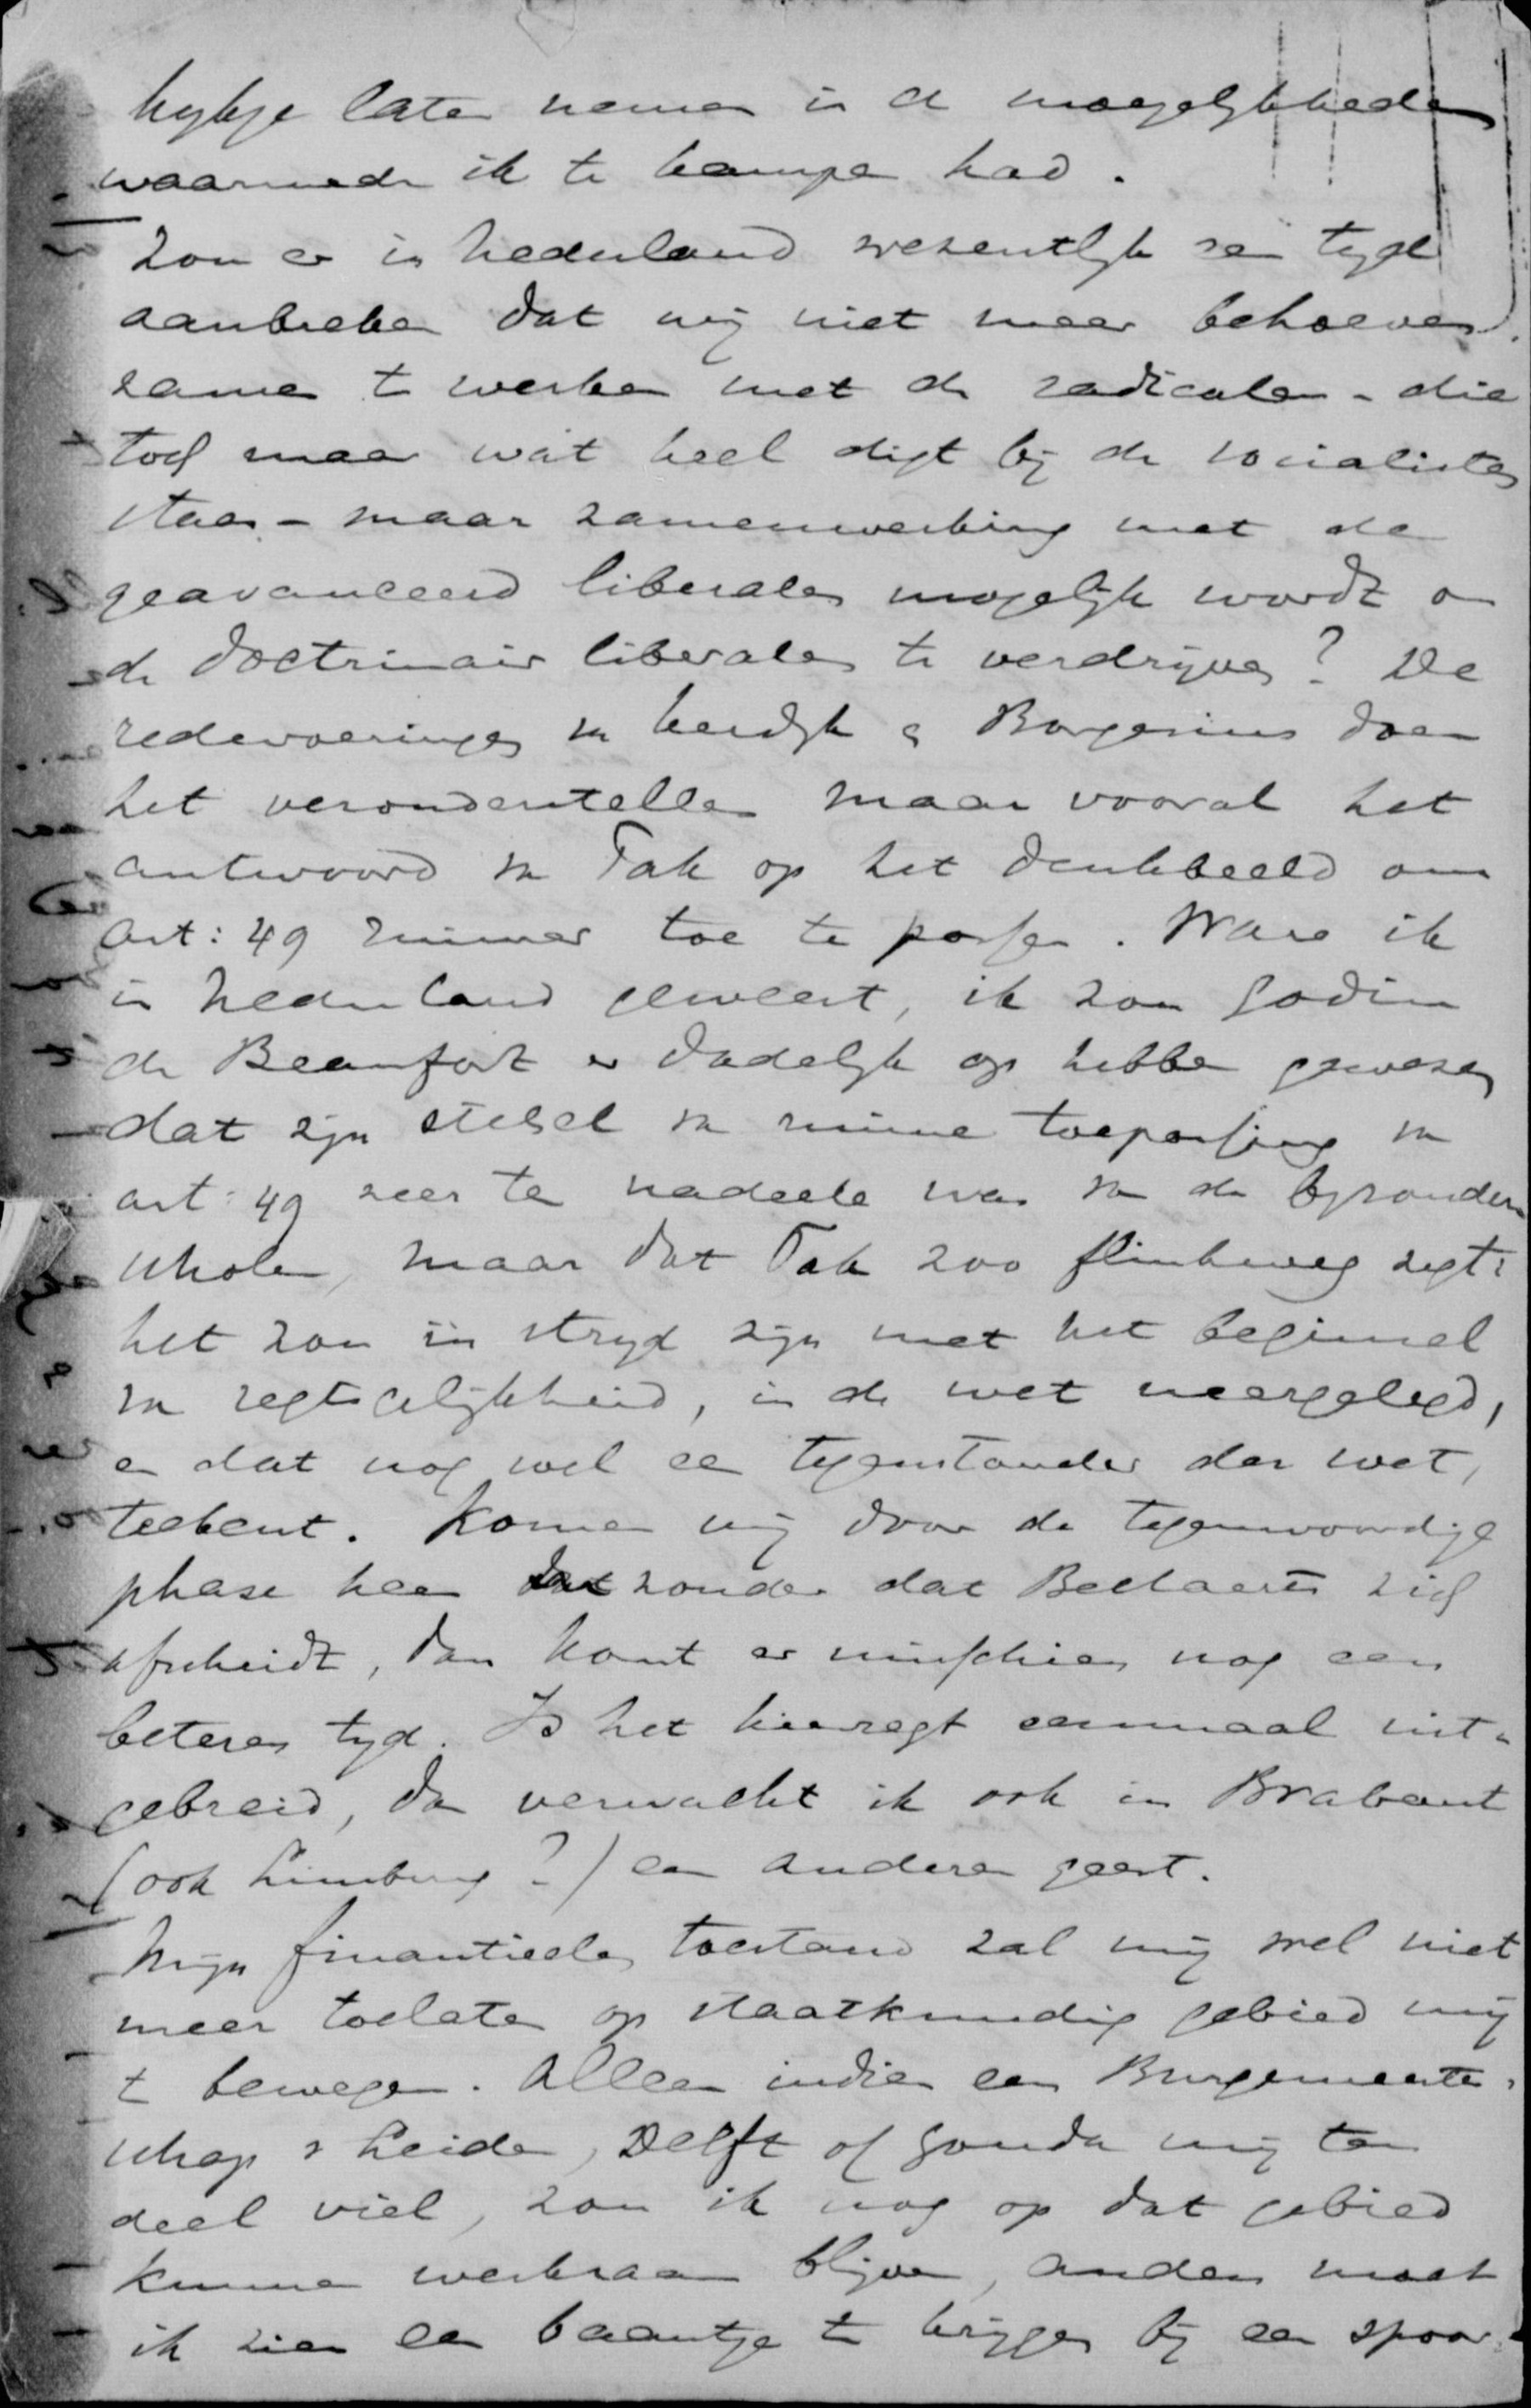 kykje laten nemen in de moeyelykheden
waarmede ik te kampen had.
Zou er in Nederland wezentlyk een tyd
aanbreken dat wij niet meer behoeven
samen te werken met de radicalen - die
toch maar wat heel digt bij de socialisten
staan - maar samenwerking met de
geavanceerd liberalen mogelijk wordt om
de doctrinair liberalen te verdrijven? De
redevoeringen van Kerdijk en Borgesius doen
het veronderstellen maar vooral het
antwoord van Tak op het denkbeeld om
art: 49 ruimer toe te passen. Ware ik
in Nederland geweest, ik zou Godin
de Beaufort er dadelijk op hebben gewezen
dat zijn stelsel van ruime toepassing van
art: 49 zeer ten nadeele was van de byzondere
scholen, maar dat Tak zoo flinkweg zegt:
het zou in stryd zijn met het beginsel
van regtsgelijkheid, in de wet neergelegd,
en dat nog wel een tegenstander der wet,
teekent. Komen wij door de tegenwoordige
phase heen zonder dat Beelaerts zich
afscheidt, dan komt er misschien nog een
beteren tyd. Is het kiesregt eenmaal uit-
gebreid, dan verwacht ik ook in Brabant
(ook Limburg?) een anderen geest.
Mijn finantieelen toestand zal mij wel niet
meer toelaten op staatkundig gebied mij
te bewegen. Alleen indien een Burgemeester-
schap Leiden, Delft of Gouda mij ten
deel viel, zou ik nog op dat gebied
kunnen werkzaam blijven, anders moet
ik zien een baantje te krijgen bij een spoor-